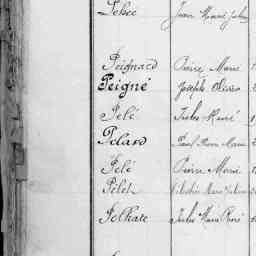 Pehec Jean Marie
Peignard Pierre Marie
Peigné Joseph Olivier
Pelé Jules René
Pelard Paul Pierre Marie
Pelé Pierre Marie
Pelet Marie
Pelhate Jules Marie René